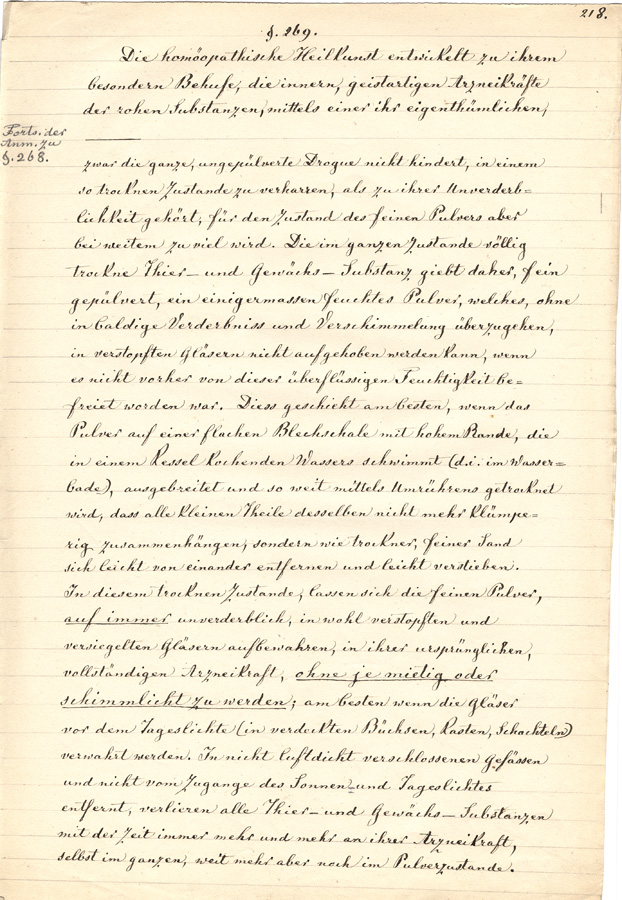 218.
§. 269.
Die homöopathische Heilkunst entwickelt zu ihrem
besondern Behufe, die innern, geistartigen Arzneikräfte
der rohen Substanzen, mittels einer ihr eigenthümlichen,
Forts. der
Anm. zu
§. 268.
zwar die ganze, ungepülverte Drogue nicht hindert, in einem
so trocknen Zustande zu verharren, als zu ihrer Unverderb=
lichkeit gehört, für den Zustand des feinen Pulvers aber
bei weitem zu viel wird. Die im ganzen Zustande völlig
trockne Thier- und Gewächs-Substanz giebt daher, fein
gepülvert, ein einigermassen feuchtes Pulver, welches, ohne
in baldige Verderbniss und Verschimmelung überzugehen,
in verstopften Gläsern nicht aufgehoben werden kann, wenn
es nicht vorher von dieser überflüssigen Feuchtigkeit be=
freiet worden war. Diess geschieht am besten, wenn das
Pulver auf einer flachen Blechschale mit hohem Rande, die
in einem Kessel kochenden Wassers schwimmt (d.i. im Wasser=
bade), ausgebreitet und so weit mittels Umrührens getrocknet
wird, dass alle kleinen Theile desselben nicht mehr klümpe=
rig zusammenhängen, sondern wie trockner, feiner Sand
sich leicht von einander entfernen und leicht verstieben.
In diesem trocknen Zustande, lassen sich die feinen Pulver,
auf immer unverderblich, in wohl verstopften und
versiegelten Gläsern aufbewahren, in ihrer ursprünglichen,
vollständigen Arzneikraft, ohne je mietig oder
schimmlicht zu werden; am besten wenn die Gläser
vor dem Tageslichte (in verdeckten Büchsen, Kasten, Schachteln)
verwahrt werden. In nicht luftdicht verschlossenen Gefässen
und nicht vom Zugange des Sonnen- und Tageslichtes
entfernt, verlieren alle Thier- und Gewächs-Substanzen
mit der Zeit immer mehr und mehr an ihrer Arzneikraft,
selbst im ganzen, weit mehr aber noch im Pulverzustande.